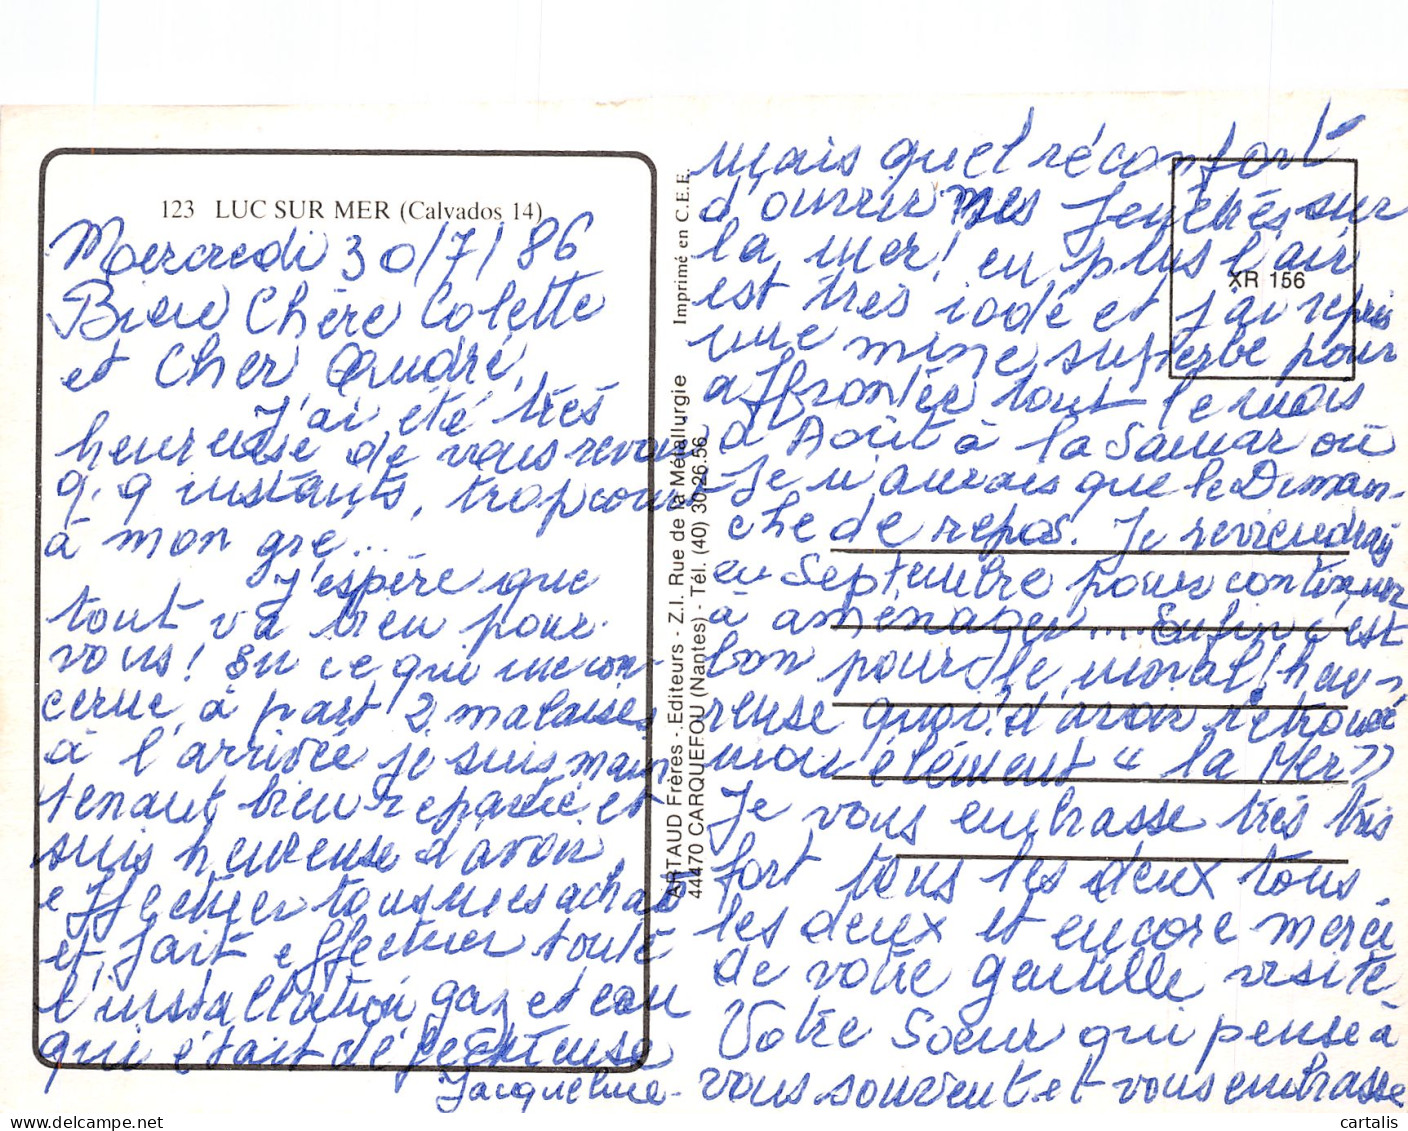 123 LUC SUR MER (Calvados 14)
Mercredi 30/7/86
Bien Chère Colette
et Cher André,
J'ai été très
heureuse de vous revoir
q.q instants, trop court
à mon gré...
J'espère que
tout va bien pour
vous! En ce qui me con-
cerne, à part 2 malaises
à l'arrivée je suis main
tenant bien reparée et
suis heureuse d'avoir
effectuer tous mes achats
et fait effectuer toute
l'installation gaz et eau
qui était défectueuse
Jacqueline -
Imprimé en C.E.E.
ARTAUD Frères - Editeurs - Z.I. Rue de la Métallurgie
44470 CARQUEFOU (Nantes) - Tél. (40) 30.26.56
XR 156
mais quel réconfort
d'ouvrir mes fenêtres sur
la mer! en plus l'air
est très iodé et j'ai repris
une mine superbe pour
affrontée tout le mois
d'Août à la Samar où
Je n'aurais que le Diman-
che de repos. Je reviendrai
en Septembre pour continuer
à aménager... Enfin c'est
bon pour le moral! heu-
reuse quoi! d'avoir retrouvé
mon élément "la Mer"
Je vous embrasse très très
fort tous les deux tous
les deux et encore merci
de votre gentille visite.
Votre Soeur qui pense à
vous souvent et vous embrasse
cartalis